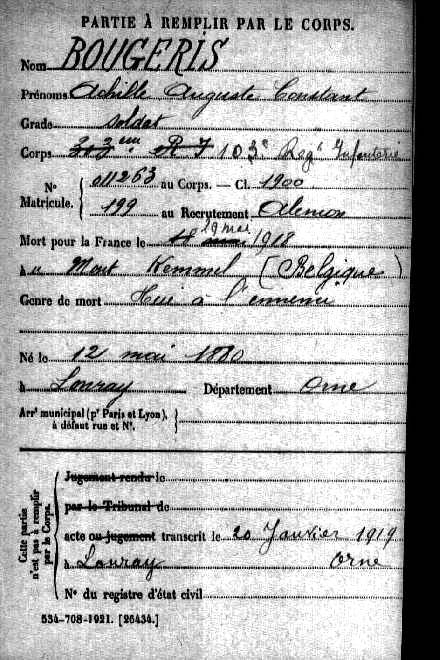 PARTIE À REMPLIR PAR LE CORPS.
Nom BOUGERIS
Prénoms Achille Auguste Constant
Grade soldat
Corps R I 103e Regt Infanterie
No 011263 au Corps. — Cl. 1900
Matricule. 199 au Recrutement Alençon
Mort pour la France le 18 mai 19 mai 1918
à u Mont Kemmel (Belgique)
Genre de mort Tué à l'ennemi
Né le 12 mai 1880
à Lonray Département Orne
Arrt municipal (pr Paris et Lyon), à défaut rue et No.
Cette partie n'est pas à remplir par le Corps.
Jugement rendu le
par le Tribunal de
acte ou jugement transcrit le 20 Janvier 1919
à Lonray Orne
No du registre d'état civil
534-708-1921. [26434.]